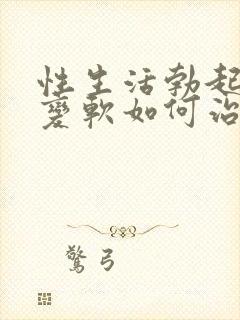 性生活勃起
变软如何治
驚弓